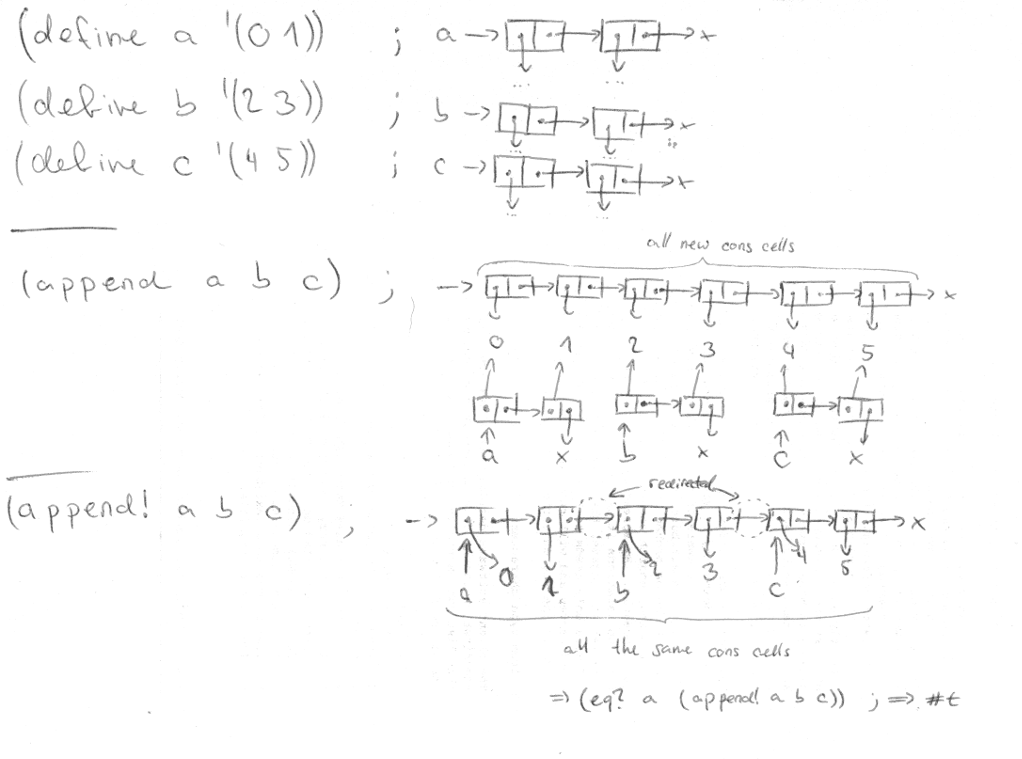 (define a '(0 1)) ; a → → → x
... ...
(define b '(2 3)) ; b → → → x
... ...
(define c '(4 5)) ; c → → → x
... ...
all new cons cells
(append a b c) ; → x
0 1 2 3 4 5
a x b x c x
redirected
(append! a b c) ; → x
a 0 1 b 2 3 c 4 5
all the same cons cells
=> (eq? a (append! a b c)) ; => #t